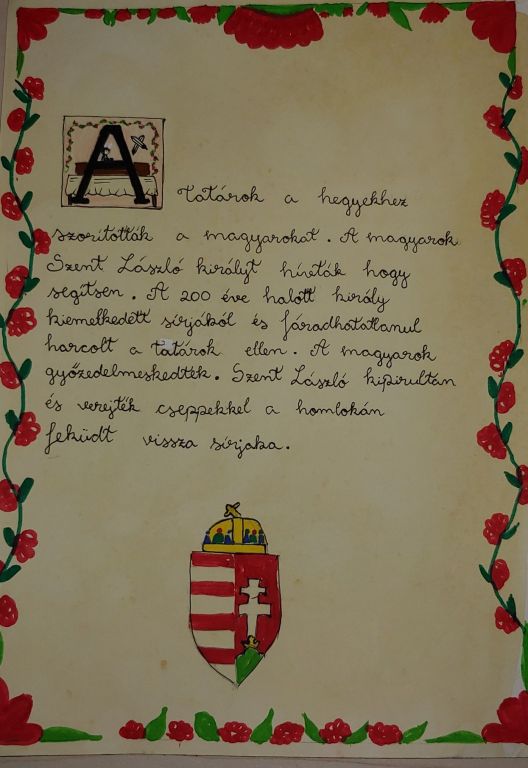 A Tatárok a hegyekhez
szorították a magyarokat. A magyarok
Szent László királyt hívták hogy
segítsen. A 200 éve halott király
kiemelkedett sírjából és fáradhatatlanul
harcolt a tatárok ellen. A magyarok
győzedelmeskedték. Szent László kipirultan
és verejték cseppekkel a homlokán
feküdt vissza sírjaba.